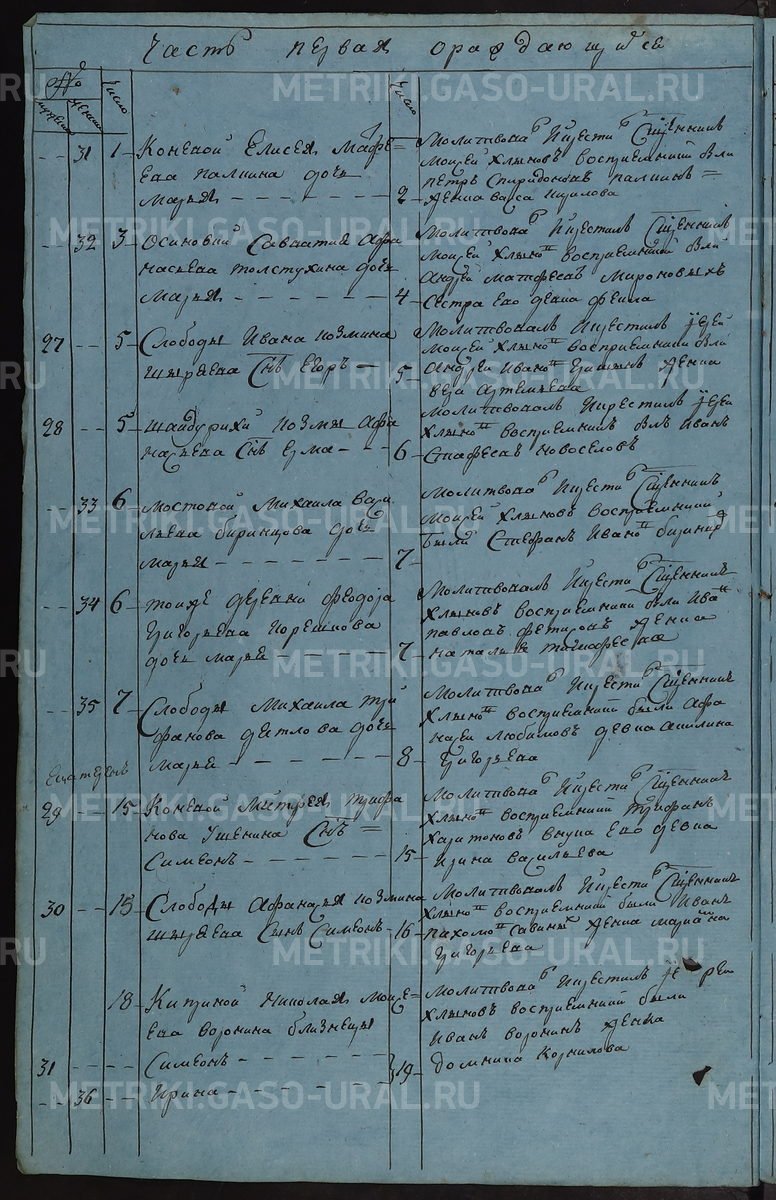 Часть первая о раждающихся
№
мужеска
женска
число
число
31 1 Коневой Елисея Матфе=
ева Палкина дочь
Марья
Молитвовалъ и крестилъ Священникъ
Моисей Хлыновъ восприемники были
Петръ Спиридоновъ Палкинъ =
2 девка Васса Кирилова
32 3 Осиновки Савватия Афа
насьева Толстухина дочь
Марья
Молитвовалъ и крестилъ Священникъ
Моисей Хлыновъ восприемники были
Андрей Матфеевъ Мироновыхъ
4 сестра его девка Фекла
27 5 Слободы Ивана Козмина
Ширяева сынъ Егоръ
Молитвовалъ и крестилъ иерей
Моисей Хлыновъ восприемники были
5 Андрей Ивановъ девка
Вера Артемьева
28 5 Шайдурихи Козмы Афа
насьева сынъ Ерма
Молитвовалъ и крестилъ иерей
Хлыновъ восприемникъ былъ Иванъ
6 Новоселовъ
33 6 Мостовой Михаила Васи
льева дочь
Марья
Молитвовалъ и крестилъ Священникъ
Моисей Хлыновъ восприемники
были Стефанъ Ивановъ
7
34 6 Тояже деревни Феодора
Григорьева Корешкова
дочь Марья
Молитвовалъ и крестилъ Священникъ
Хлыновъ восприемники были Иванъ
Павловъ девка
7 Наталья Тимофеева
35 7 Слободы Михаила Три
фанова Дятлова дочь
Марья
Молитвовалъ и крестилъ Священникъ
Хлыновъ восприемники были Афа
насей Любимовъ девка Акилина
8 Григорьева
29 15 Коневой Митрея Трифа
нова Ушенина сынъ =
Симеонъ
Молитвовалъ и крестилъ Священникъ
Хлыновъ восприемники Трифанъ
Харитоновъ внука его девка
15 Ирина Васильева
30 15 Слободы Афанасья Козмина
Ширяева сынъ Симеонъ
Молитвовалъ и крестилъ Священникъ
Хлыновъ восприемники были Иванъ
16 Пахомовъ девка Марья
Григорьева
18 Киприной Николая Моисе=
ева Воронина близнецы
31 Симеонъ
36 Ирина
Молитвовалъ и крестилъ иерей
Хлыновъ восприемники были
Иванъ Воронинъ девка
19 Домнина Корнилова
METRIKI.GASO-URAL.RU